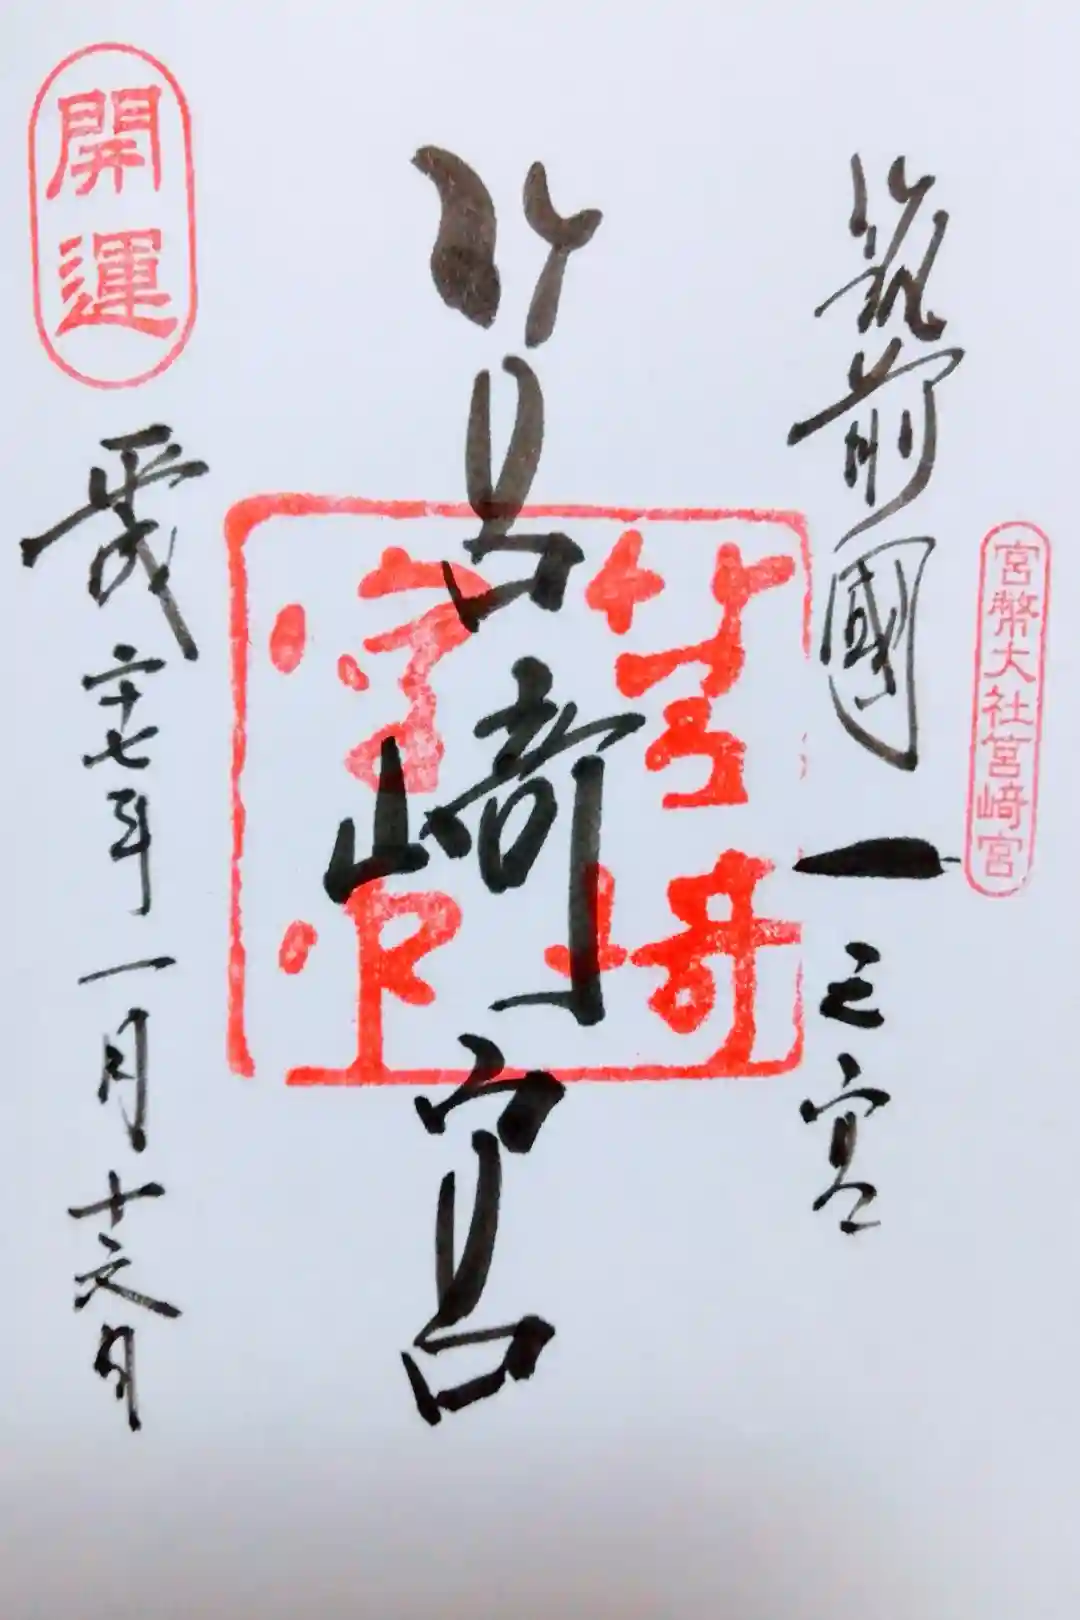 官幣大社筥﨑宮
筑前國一之宮
筥﨑宮
筥﨑
開運
平成二十七年一月十六日